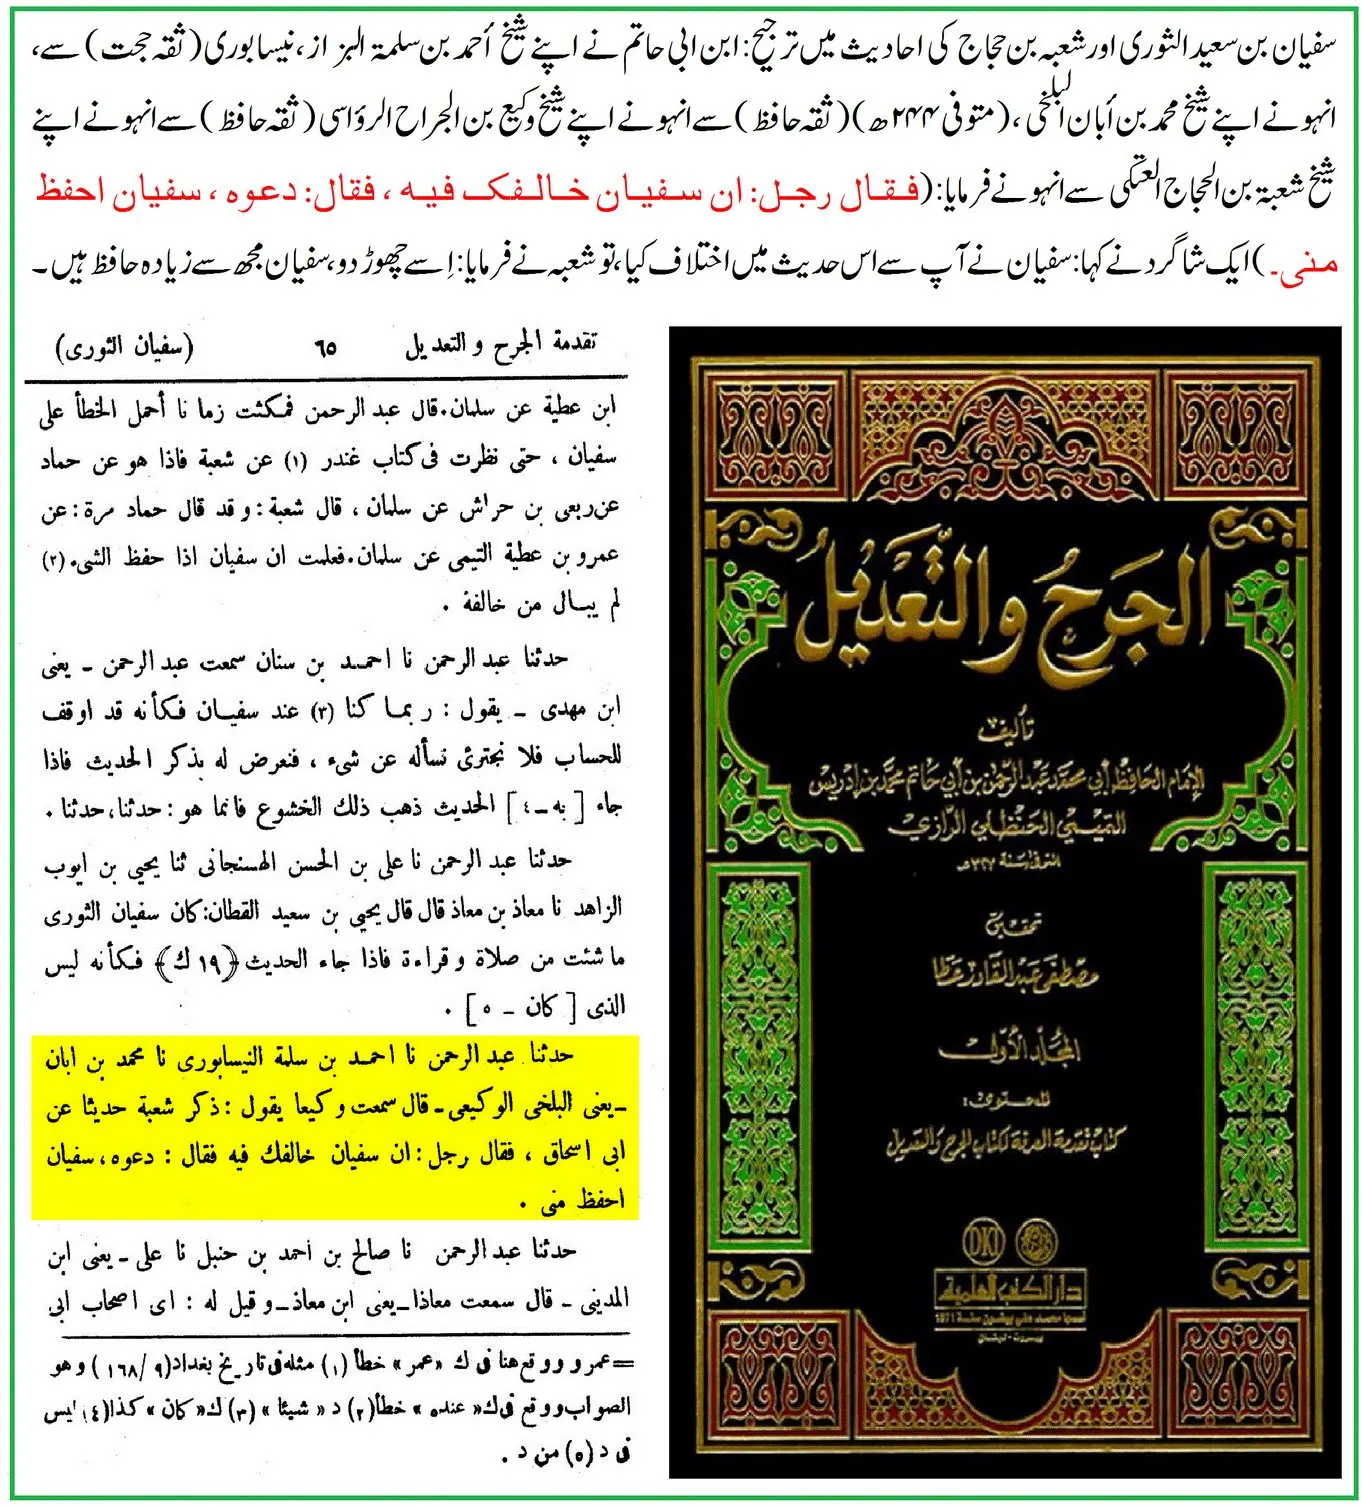 سفیان بن سعید الثوری اور شعبہ بن حجاج کی احادیث میں ترجیح: ابن ابی حاتم نے اپنے شیخ أحمد بن سلمة البزاز، نیسابوری (ثقہ حجت) سے،
انہو نے اپنے شیخ محمد بن أبان البلخی، (متوفی ۲۴۴ھ) (ثقہ حافظ) سے انہو نے اپنے شیخ وکیع بن الجراح الرؤاسی (ثقہ حافظ) سے انہو نے اپنے
شیخ شعبة بن الحجاج العتکی سے انہو نے فرمایا: (فقال رجل: ان سفیان خالفک فیه ، فقال: دعوه ، سفیان احفظ
منی۔) ایک شاگرد نے کہا: سفیان نے آپ سے اس حدیث میں اختلاف کیا، تو شعبہ نے فرمایا: اِسے چھوڑ دو، سفیان مجھ سے زیادہ حافظ ہیں۔
تقدمة الجرح والتعديل ٦٥ (سفيان الثورى)
ابن عطية عن سلمان. قال عبد الرحمن فمكثت زمانا أحمل الخطأ على
سفيان ، حتى نظرت فى كتاب غندر (١) عن شعبة فاذا هو عن حماد
عن ربعى بن حراش عن سلمان ، قال شعبة : وقد قال حماد مرة : عن
عمرو بن عطية التيمى عن سلمان. فعلمت ان سفيان اذا حفظ الشىء (٢)
لم يبال من خالفة .
حدثنا عبد الرحمن نا احمد بن سنان سمعت عبد الرحمن ـ يعنى
ابن مهدى ـ يقول : ربما كنا (٣) عند سفيان فكأنه قد اوقف
للحساب فلا نجترئ نسأله عن شىء ، فنعرض له بذكر الحديث فاذا
جاء [ به ـ ٤ ] الحديث ذهب ذلك الخشوع فانما هو : حدثنا، حدثنا .
حدثنا عبد الرحمن نا على بن الحسن الهسنجانى ثنا يحيى بن ايوب
الزاهد نا معاذ بن معاذ قال قال يحيى بن سعيد القطان : كان سفيان الثورى
ما شئت من صلاة وقراءة فاذا جاء الحديث (١٩ ك) فكأنه ليس
الذى [ كان ـ ٥ ] .
حدثنا عبد الرحمن نا احمد بن سلمة النيسابورى نا محمد بن ابان
ـ يعنى البلخى الوكيعى ـ قال سمعت وكيعا يقول : ذكر شعبة حديثا عن
ابى اسحاق ، فقال رجل : ان سفيان خالفك فيه فقال : دعوه، سفيان
احفظ منى .
حدثنا عبد الرحمن نا صالح بن أحمد بن حنبل نا على ـ يعنى ابن
المدينى ـ قال سمعت معاذا ـ يعنى ابن معاذ ـ وقيل له : اى اصحاب ابى
= عمرو ووقع هنا فى ك «عمر» خطأ (١) مثله فى تاريخ بغداد (٩/ ١٦٨) وهو
الصواب ووقع فى ك «عنده» خطأ (٢) د «شيئا» (٣) ك «كان» كذا (٤) ليس
فى د (٥) من د .
الجرح والتعديل
تأليف
الإمام الحافظ أبي محمد عبد الرحمن بن أبي حاتم محمد بن إدريس
التميمي الحنظلي الرازي
المتوفى سنة ٣٢٧هـ
تحقيق
مصطفى عبد القادر عطا
المجلد الأول
المحتوى:
كتاب تقدمة المعرفة لكتاب الجرح والتعديل
DKI
دار الكتب العلمية
أسسها محمد علي بيضون سنة 1971
بيروت - لبنان